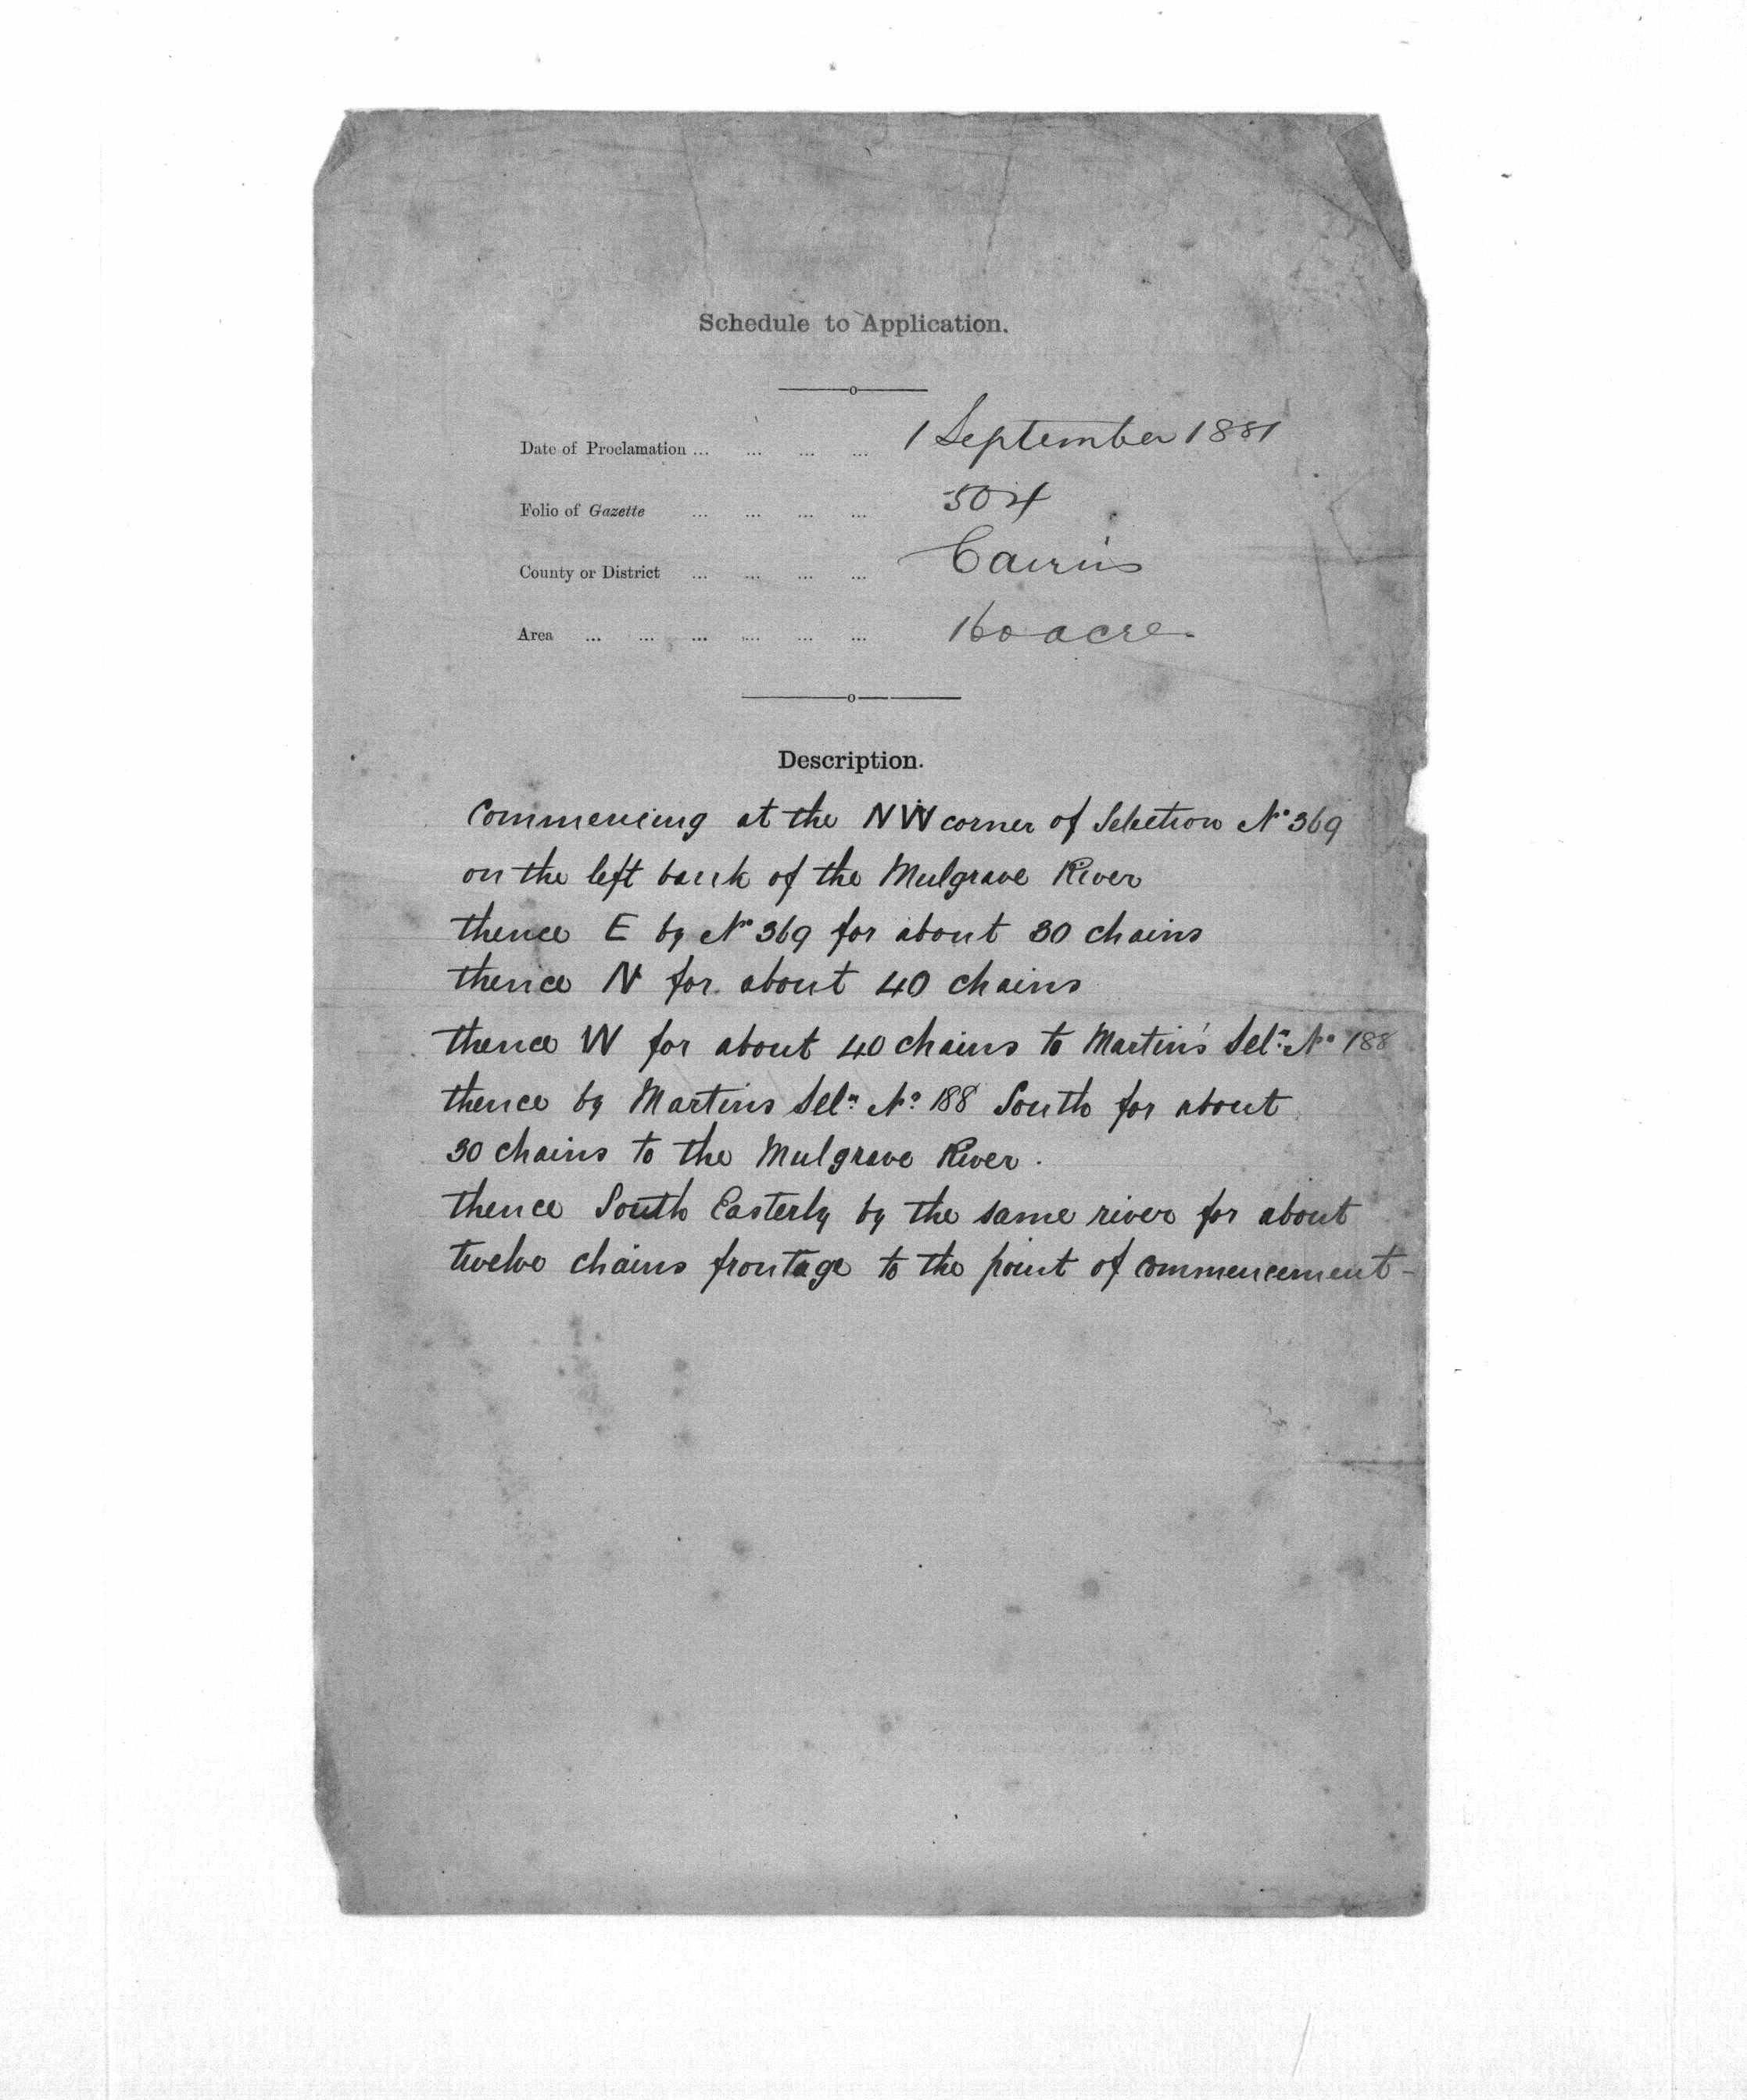 Schedule to Application.
Date of Proclamation ... ... ... ... 1 September 1881
Folio of Gazette ... ... ... ... 504
County or District ... ... ... ... Cairns
Area ... ... ... ... ... ... 160 acre.
Description.
Commencing at the NW corner of Selection No 369
on the left bank of the Mulgrave River
thence E by No 369 for about 30 chains
thence N for about 40 chains
thence W for about 40 chains to Martin's Seln No 188
thence by Martins Seln No 188 South for about
30 chains to the Mulgrave River.
thence South Easterly by the same river for about
twelve chains frontage to the point of commencement-